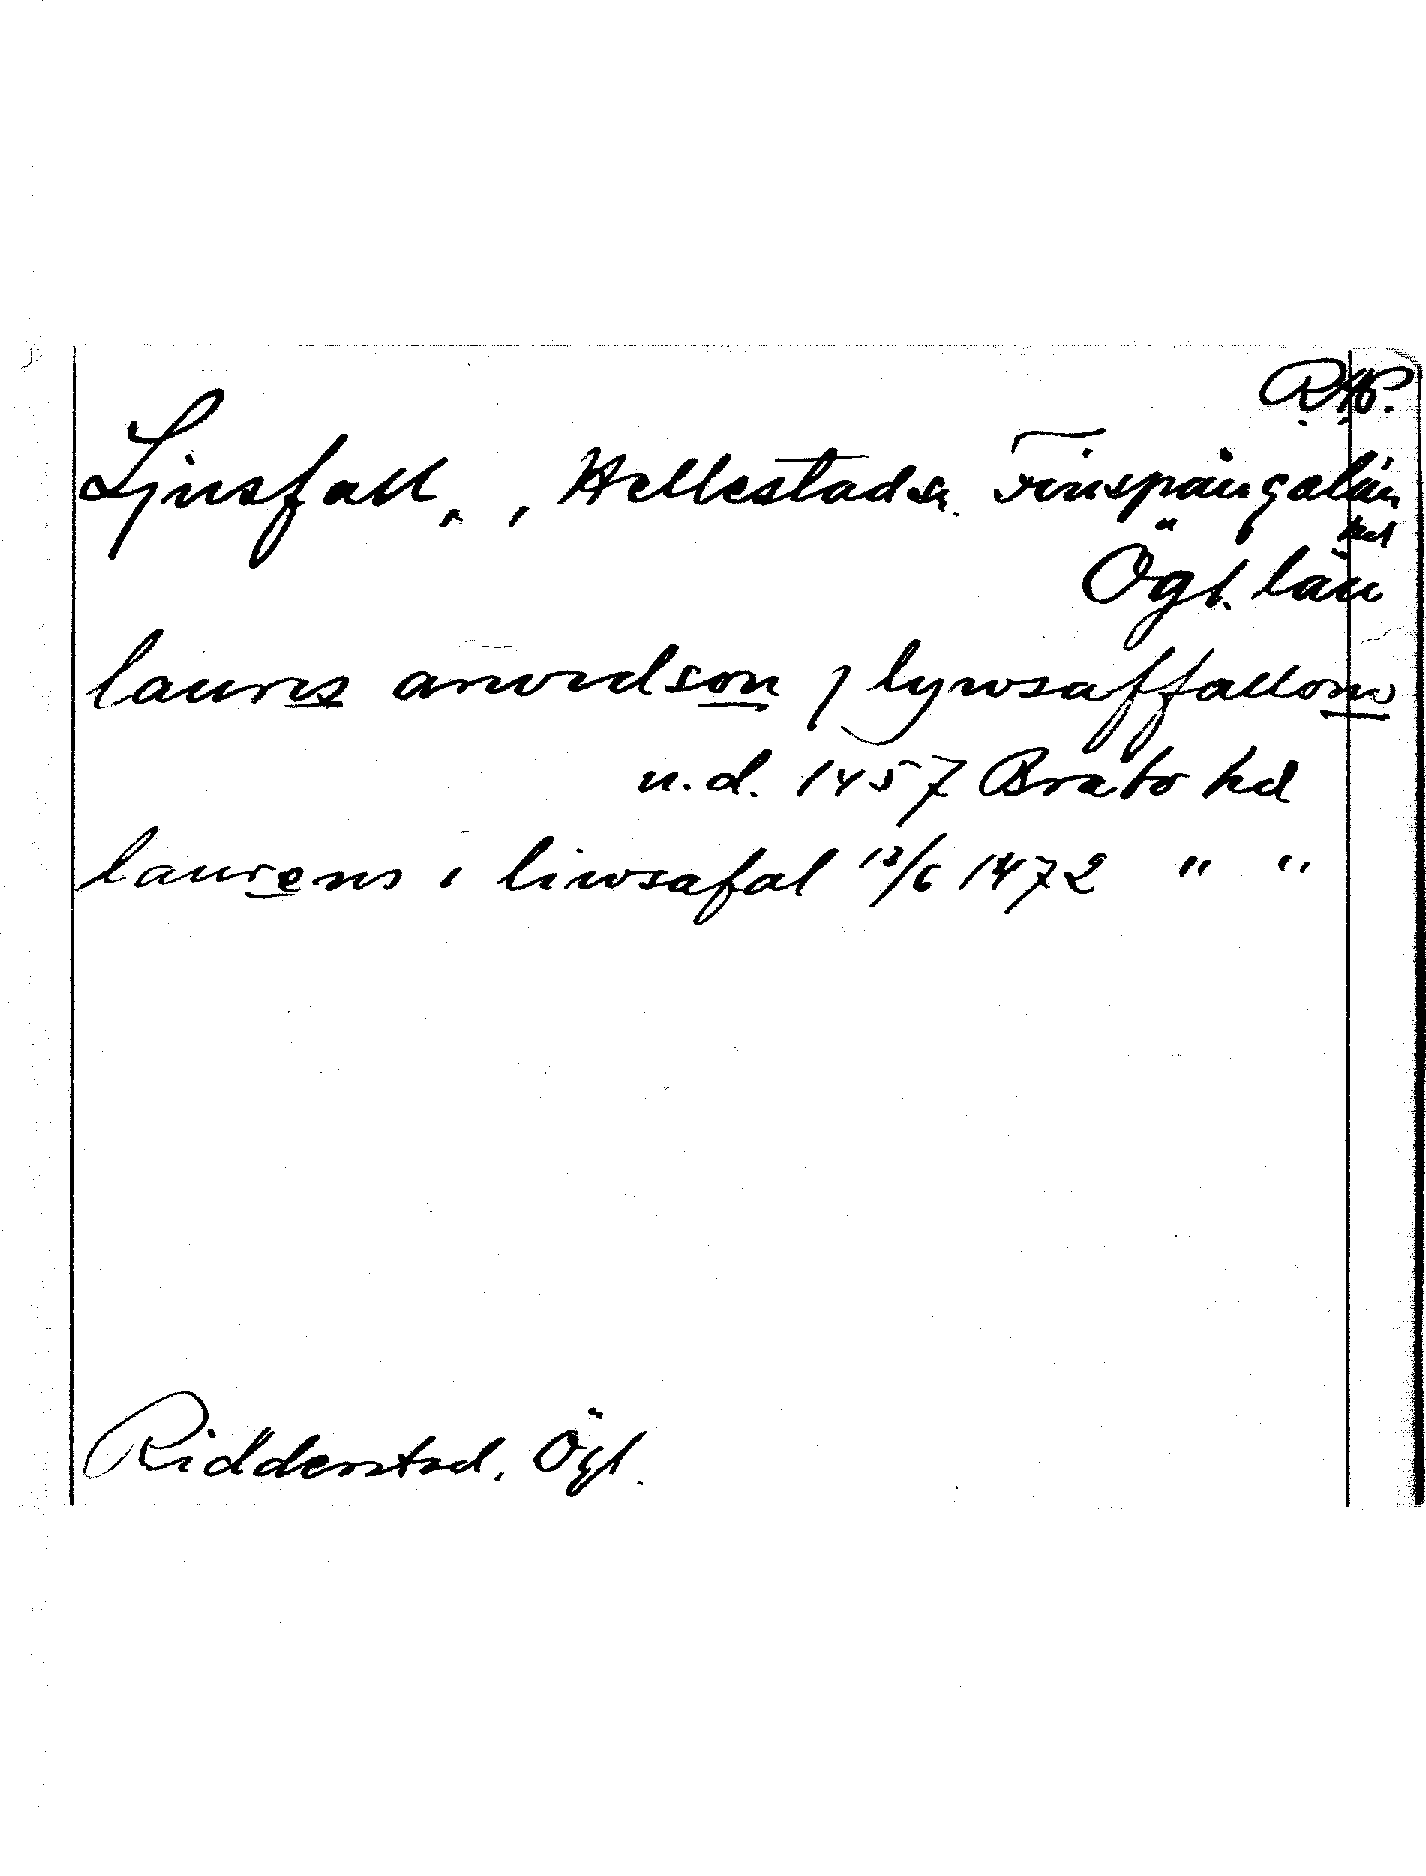 RAP.
Ljusfall, , Hellestads sn. Finspångalän
hd
Ögl. län
lauris arwidson j lywsaffallom
u.d. 1457 Brabo hd
laurens i liwsafal 12/6 1472 " "
Ridderstad, Ögl.